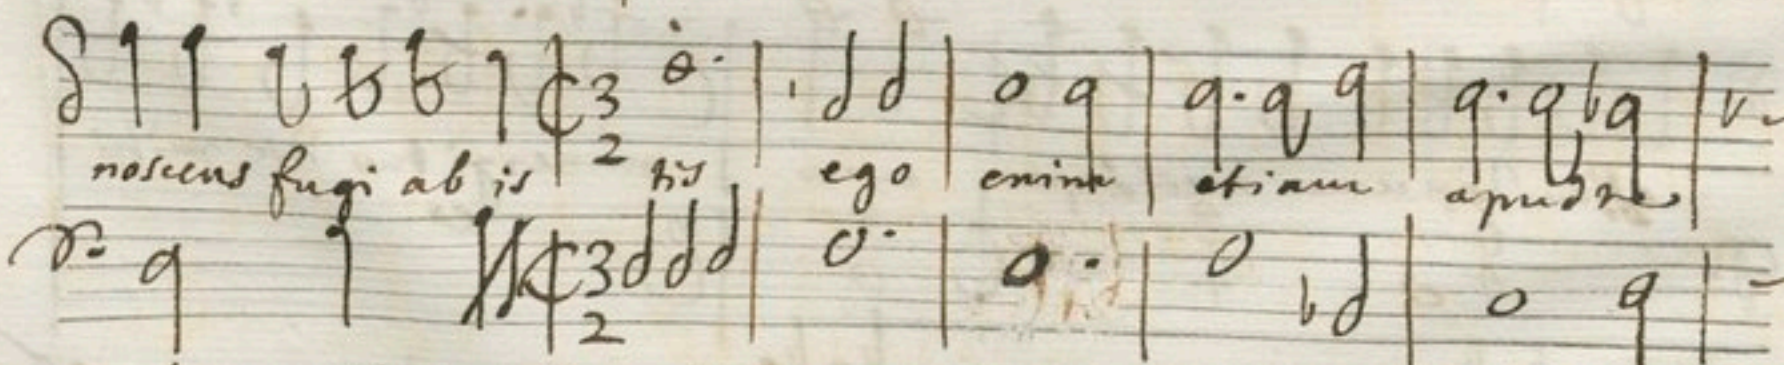 3
2
noscens fugi ab is tis ego enim etiam apud
3
2